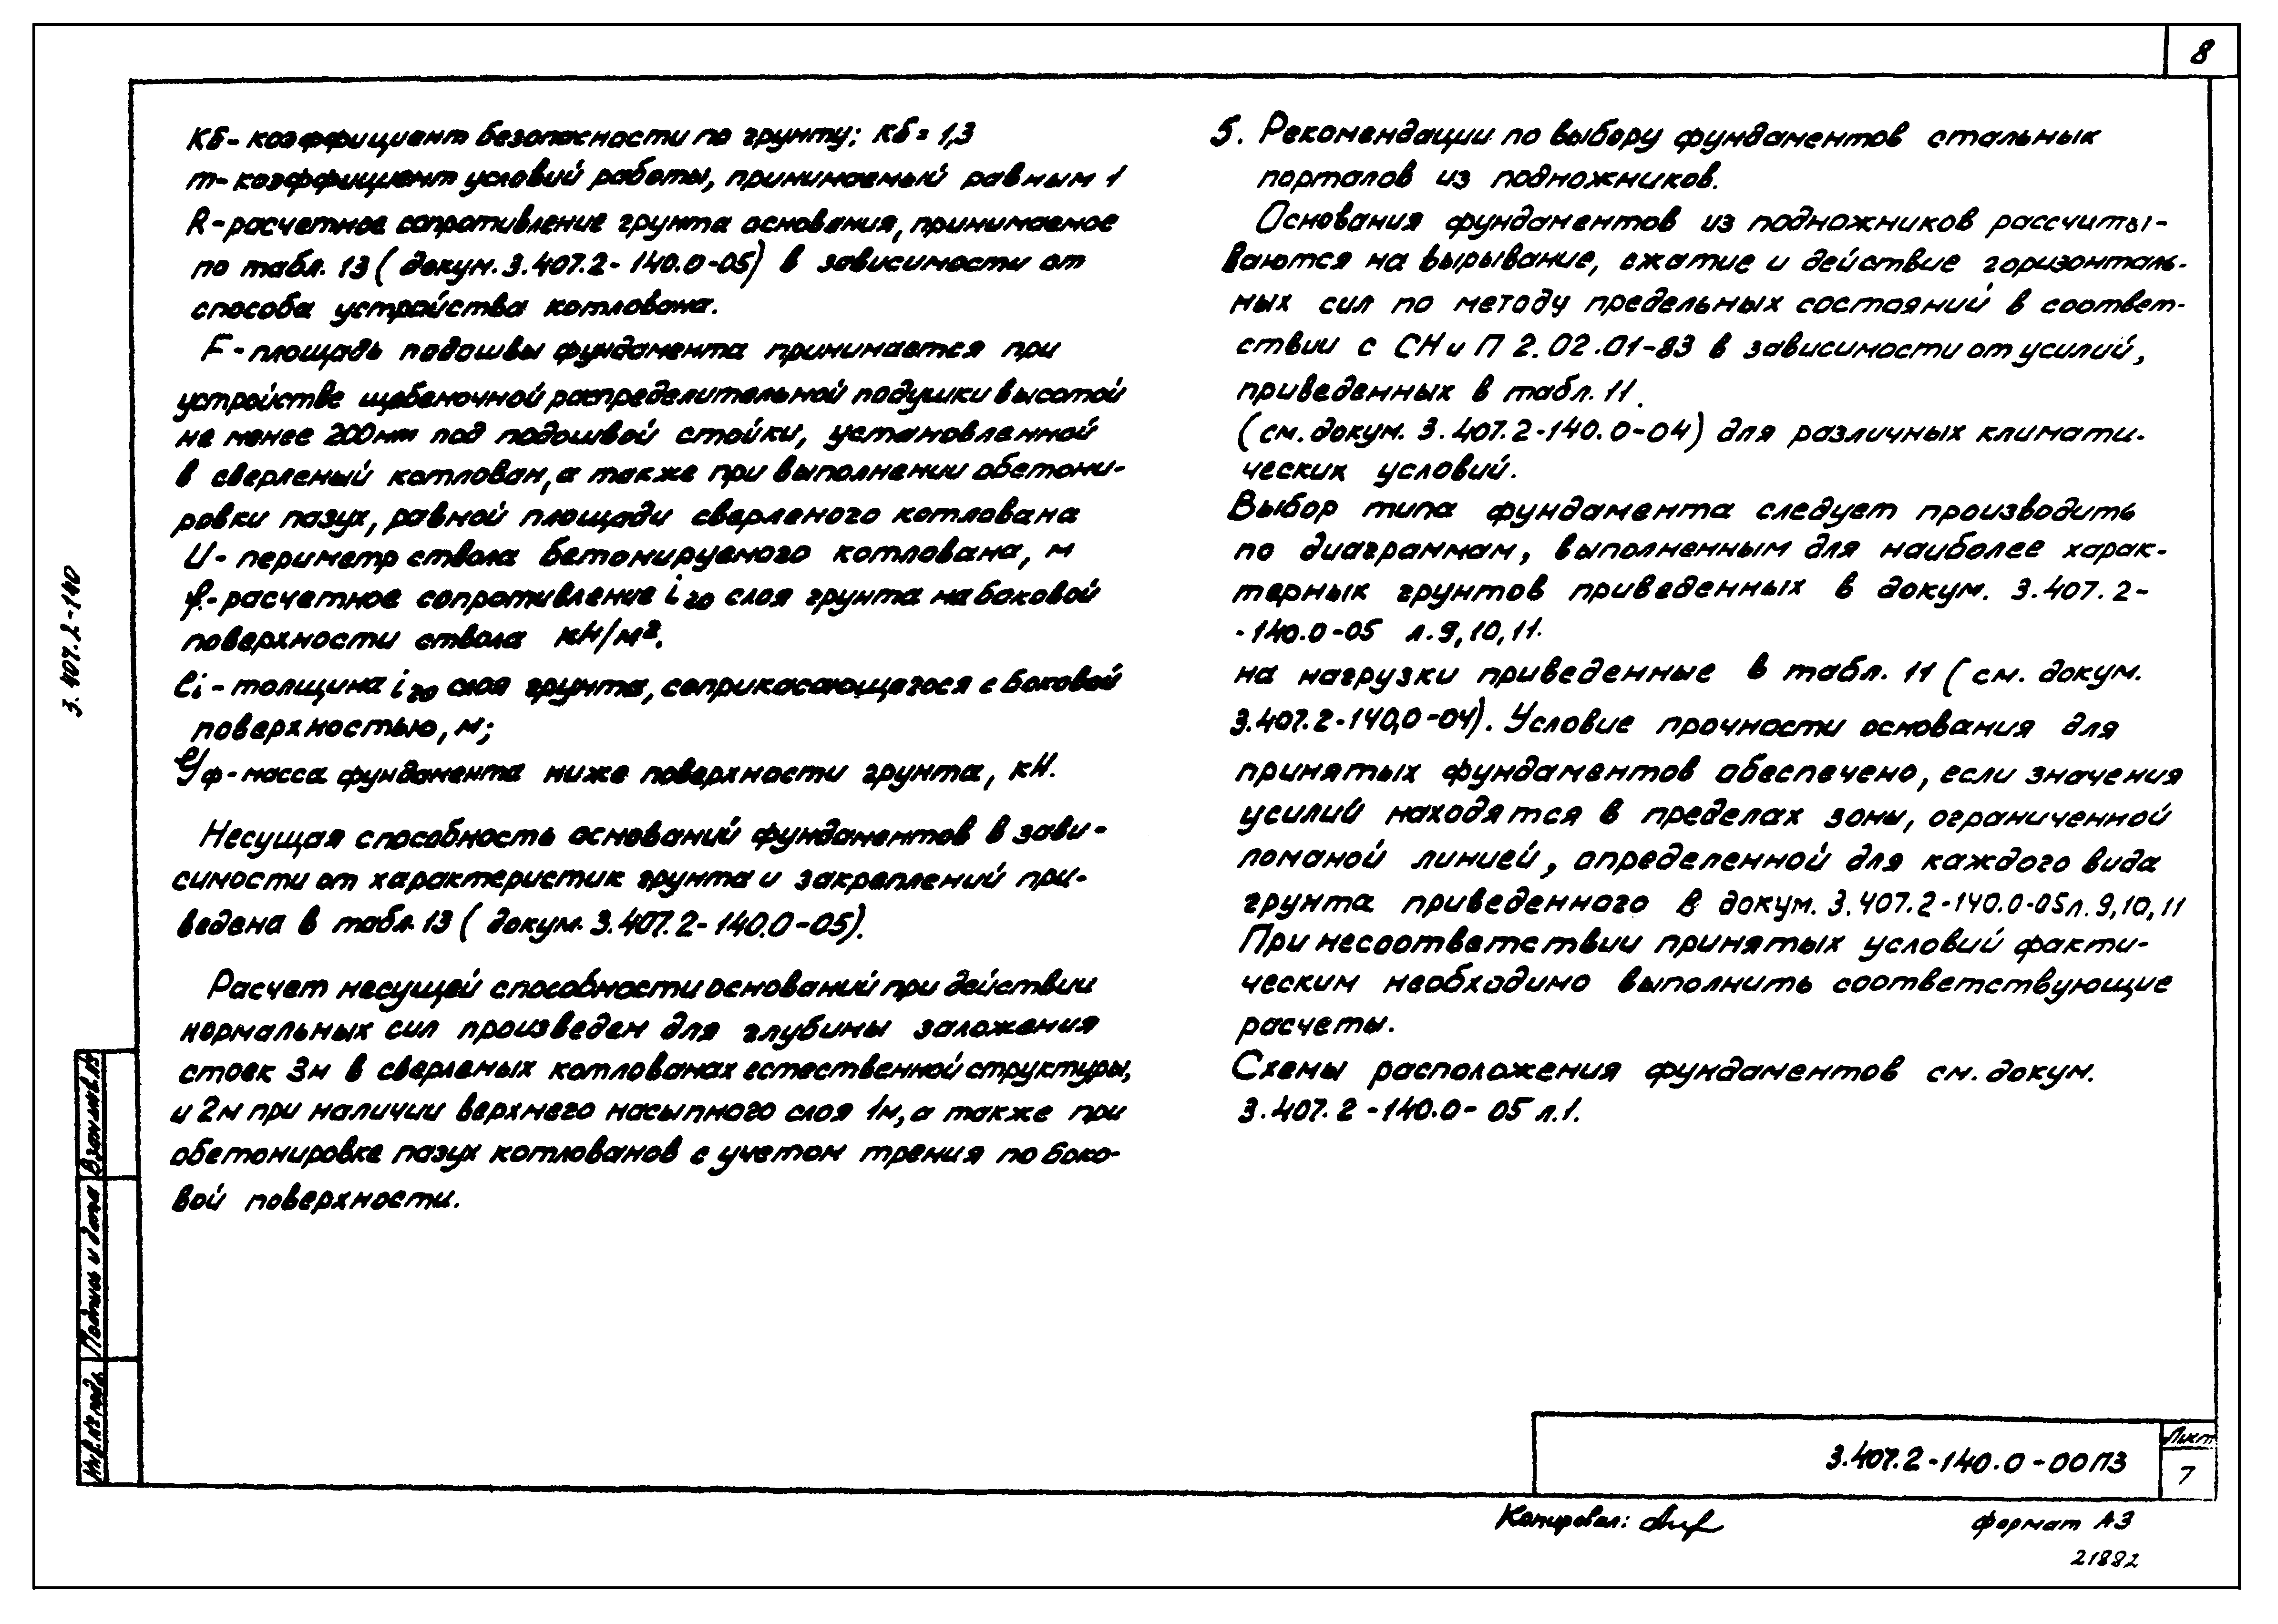 8
Кб - коэффициент безопасности по грунту; Кб = 1,3
m - коэффициент условий работы, принимаемый равным 1
R - расчетное сопротивление грунта основания, принимаемое
по табл. 13 ( докум. 3.407.2-140.0-05) в зависимости от
способа устройства котлована.
F - площадь подошвы фундамента принимается при
устройстве щебеночной распределительной подушки высотой
не менее 200мм под подошвой стойки, установленной
в сверленый котлован, а также при выполнении обетони-
ровки пазух, равной площади сверленого котлована
U - периметр ствола бетонируемого котлована, м
f - расчетное сопротивление iго слоя грунта на боковой
поверхности ствола кН/м².
ℓi - толщина iго слоя грунта, соприкасающегося с боковой
поверхностью, м;
Gф - масса фундамента ниже поверхности грунта, кН.
Несущая способность оснований фундаментов в зави-
симости от характеристик грунта и закреплений при-
ведена в табл. 13 ( докум. 3.407.2-140.0-05).
Расчет несущей способности оснований при действии
нормальных сил произведен для глубины заложения
стоек 3м в сверленых котлованах естественной структуры,
и 2м при наличии верхнего насыпного слоя 1м, а также при
обетонировке пазух котлованов с учетом трения по боко-
вой поверхности.
5. Рекомендации по выбору фундаментов стальных
порталов из подножников.
Основания фундаментов из подножников рассчиты-
ваются на вырывание, сжатие и действие горизонталь-
ных сил по методу предельных состояний в соответ-
ствии с СНиП 2.02.01-83 в зависимости от усилий,
приведенных в табл. 11.
(см. докум. 3.407.2-140.0-04) для различных климати-
ческих условий.
Выбор типа фундамента следует производить
по диаграммам, выполненным для наиболее харак-
терных грунтов приведенных в докум. 3.407.2-
-140.0-05 л.9,10,11.
на нагрузки приведенные в табл. 11 ( см. докум.
3.407.2-140,0-04). Условие прочности основания для
принятых фундаментов обеспечено, если значения
усилий находятся в пределах зоны, ограниченной
ломаной линией, определенной для каждого вида
грунта приведенного в докум. 3.407.2-140.0-05 л.9,10,11
При несоответствии принятых условий факти-
ческим необходимо выполнить соответствующие
расчеты.
Схемы расположения фундаментов см. докум.
3.407.2-140.0-05 л.1.
3.407.2-140
Взам.инв.№
Подпись и дата
Инв.№ подл.
3.407.2-140.0-00ПЗ
Лист
7
Копировал:
Формат А3
21882